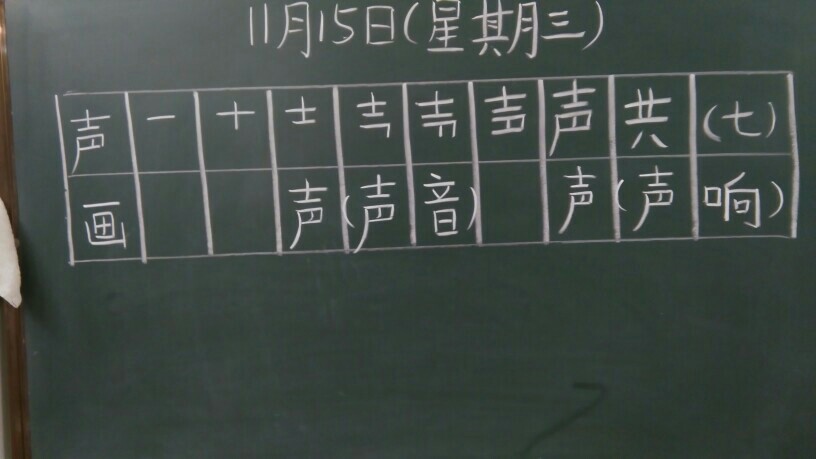 11月15日(星期三)
声 一 十 士 声 共 (七)
画 声 (声 音) 声 (声 响)